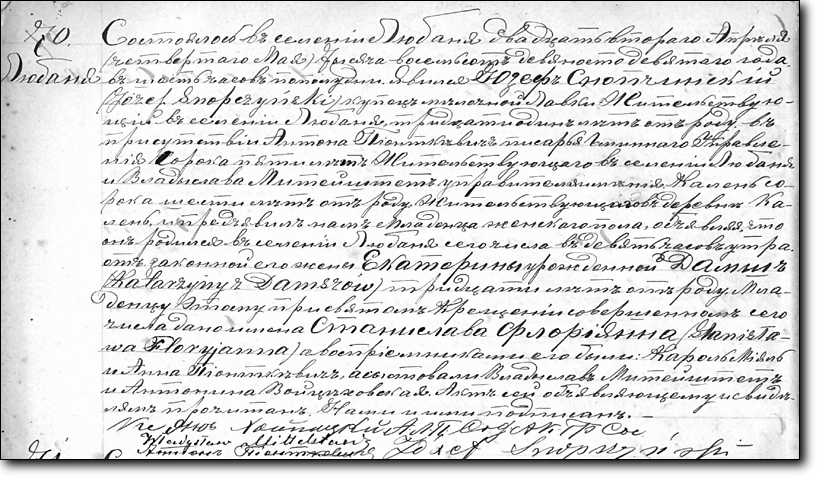 270.
Любаня
Состоялось въ селеніи Любаня двадцать второго Апрѣля
(четвертаго Мая) тысяча восемьсотъ девяносто девятаго года
въ шесть часовъ пополудни. Явился Юзефъ Снопчинский
(Józef Snopczyński) купецъ молочной лавки жительствую-
щій въ селеніи Любаня, тридцати одинъ лѣтъ отъ роду, въ
присутствіи Антона Піонткѣвичъ писаря Гминнаго Управле-
нія сорока пяти лѣтъ жительствующаго въ селеніи Любаня
и Владыслава Митейштетъ управителя имѣнія Калень со-
рока шести лѣтъ отъ роду, жительствующаго въ деревнѣ Ка-
лень, и предъявилъ намъ младенца женскаго пола, объявляя, что
онъ родился въ селеніи Любаня сего числа въ девять часовъ утра
отъ законной его жены Екатерины урожденной Дамшъ
(Katarzyny z Damszow) тридцати лѣтъ отъ роду. Мла-
денцу этому при святомъ крещеніи совершенномъ сего
числа дано имена Станислава Флоріянна (Stanisła-
wa Floryjanna) а воспріемниками его были: Кароль
и Анна Піонткѣвичъ, асыстовали Владыславъ Митейштетъ
и Антонина Войцѣховская. Актъ сей объявляющему и свидѣ-
лямъ прочитанъ, Нами и ими подписанъ.
Władysław Mittelstaedt
Антонъ Піонткевичъ Józef Snopczyński